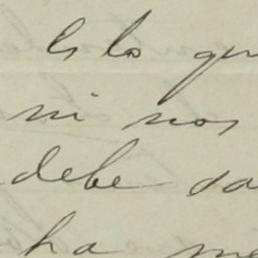 Es lo qu
ni nos
debe da
ha me